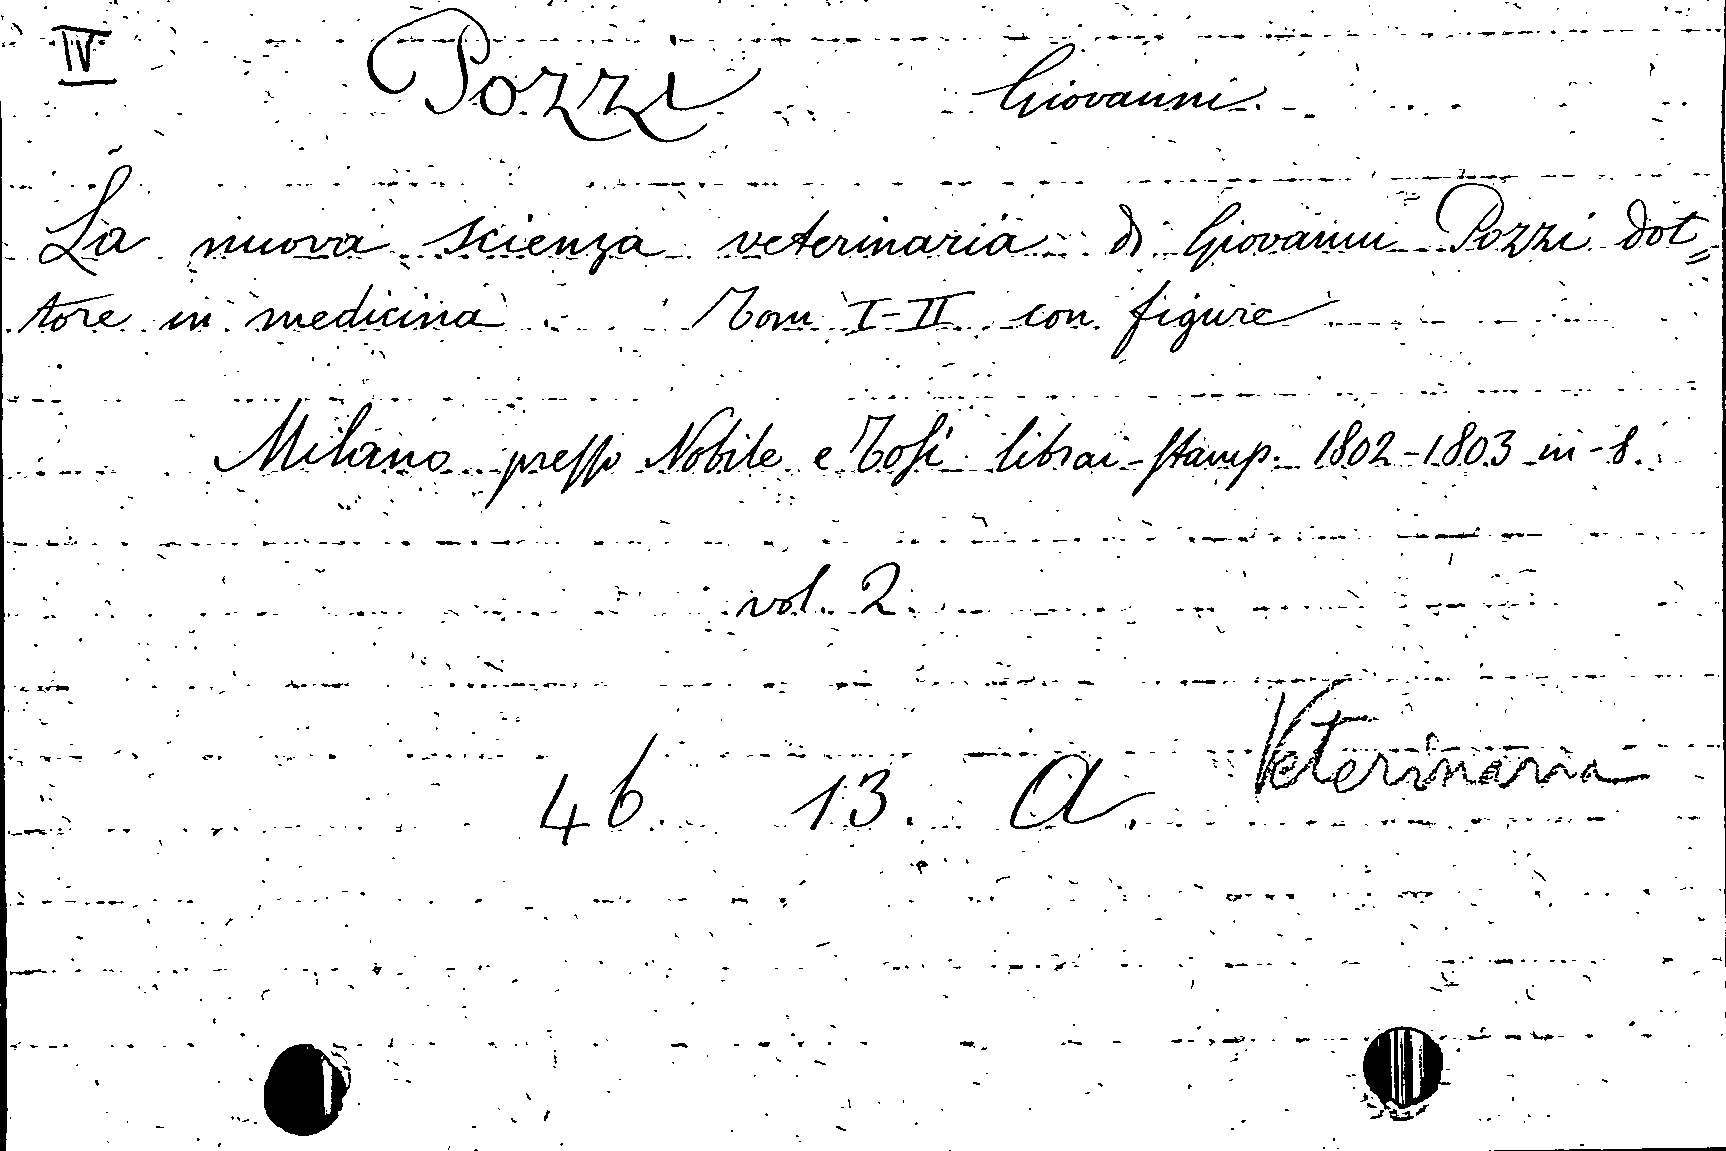 IV
Pozzi Giovanni.
La nuova scienza veterinaria di Giovanni Pozzi dot=
tore in medicina Tom I-II con figure
Milano presso Nobile e Tosi librai-stamp. 1802-1803 in-8.
vol. 2.
Veterinaria
46. 13. A.